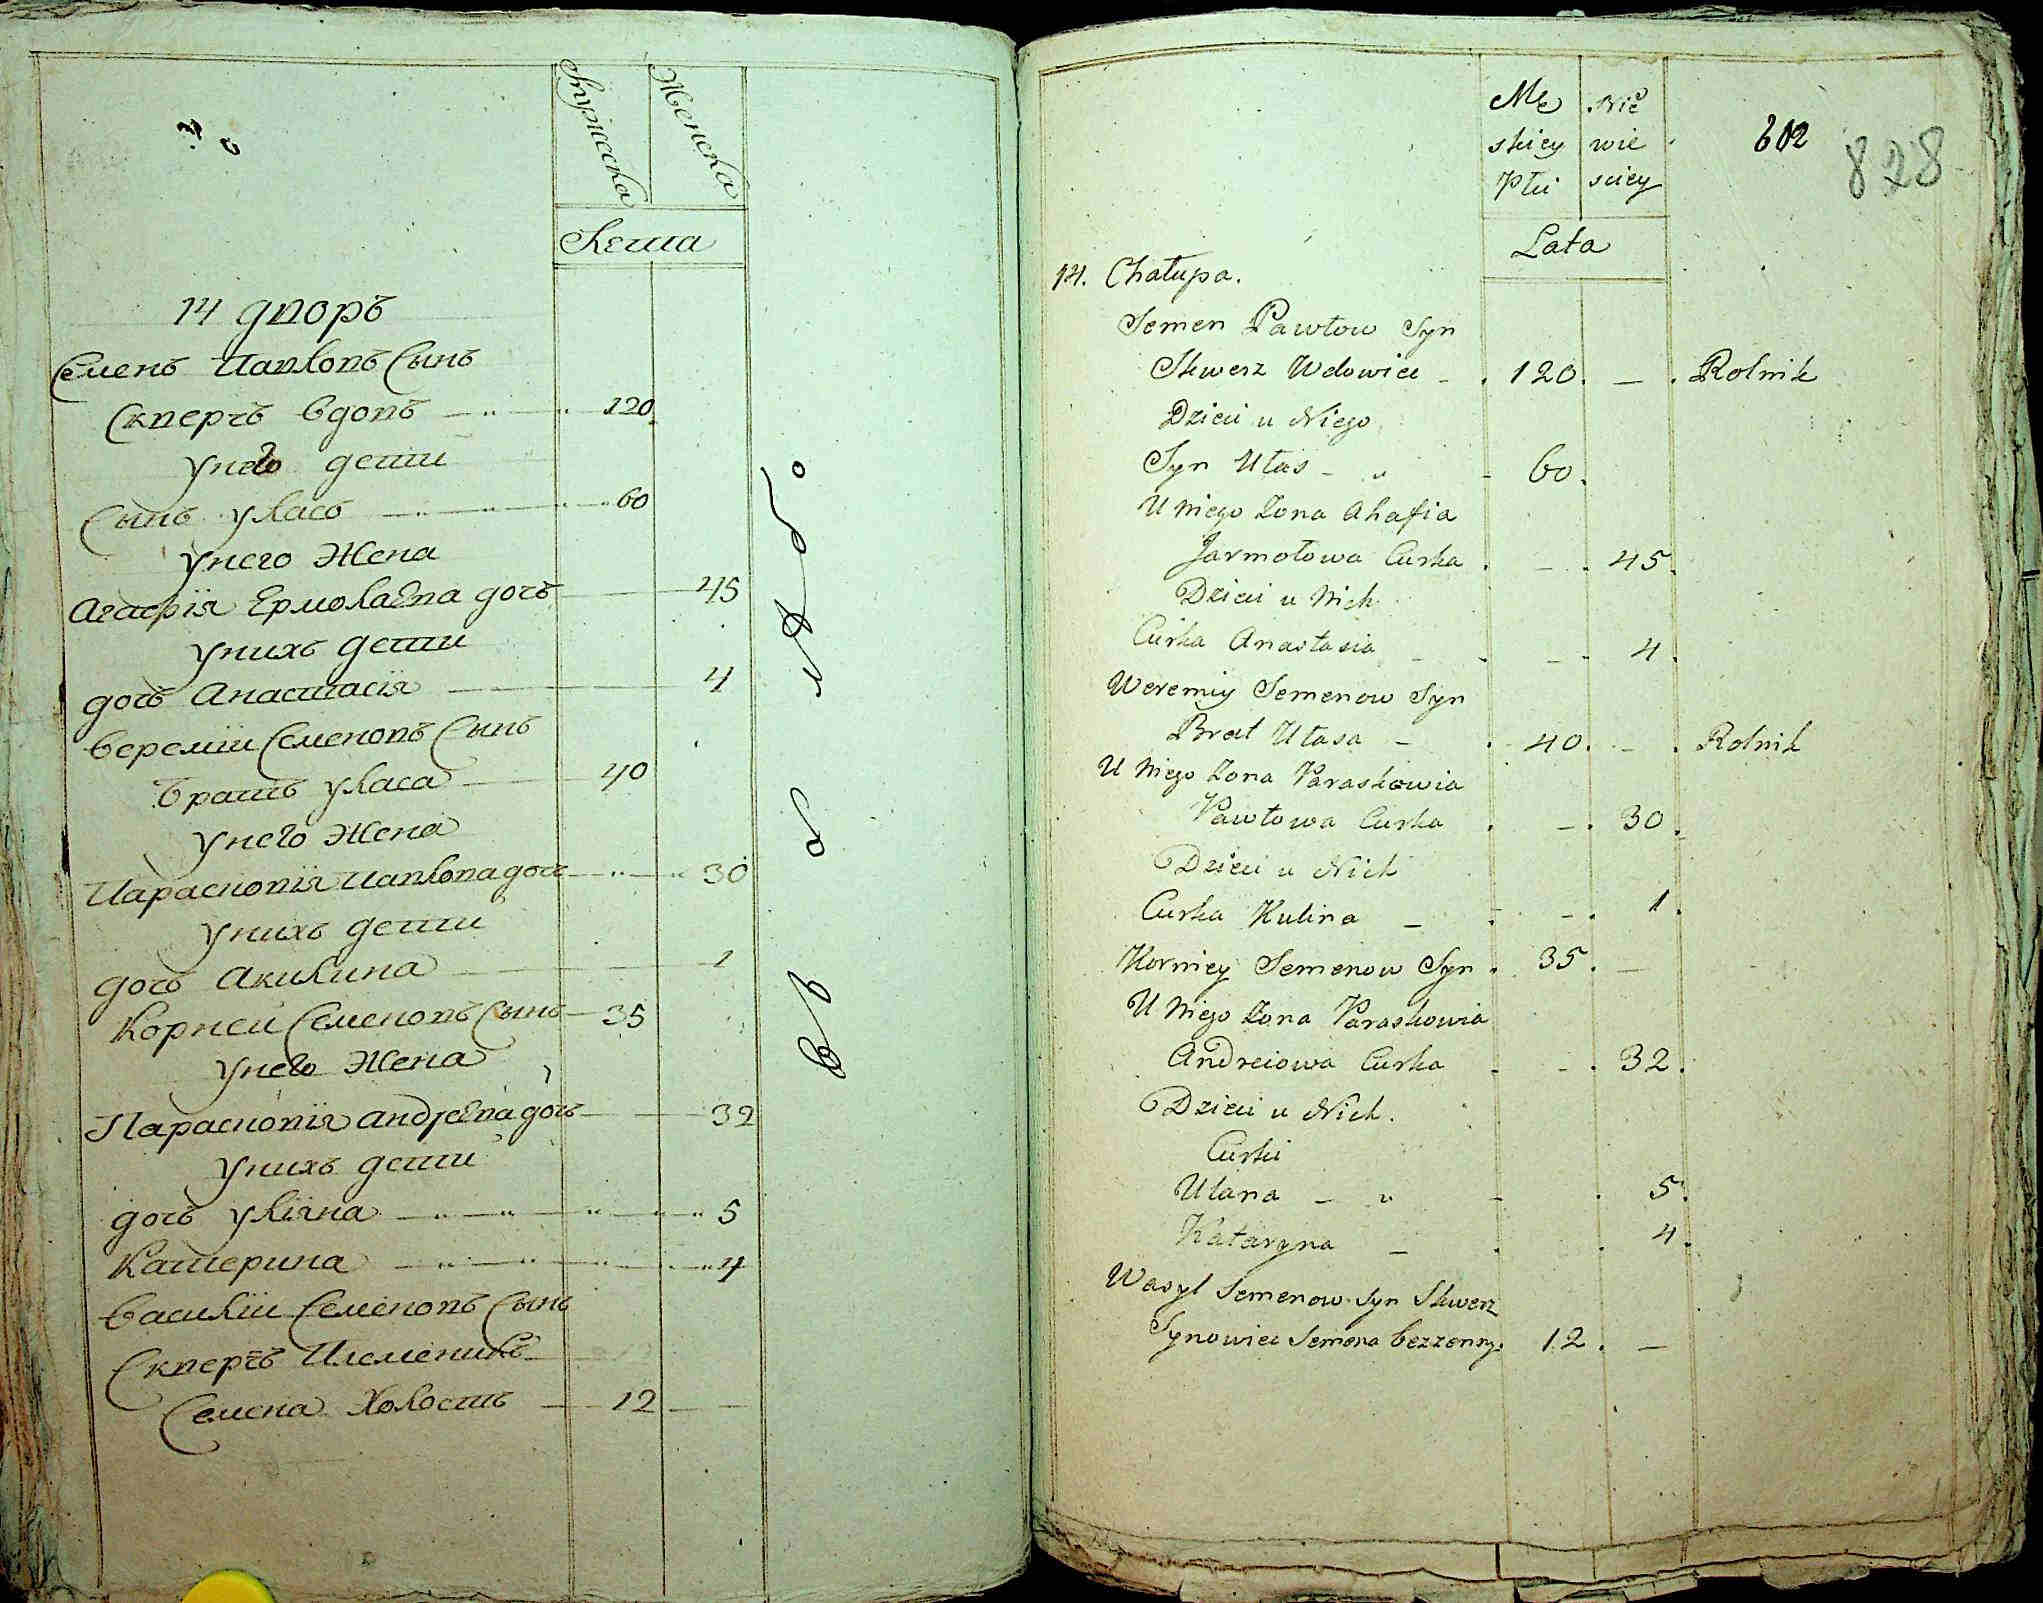 Мужеска
Женска
Лета
14 дворъ
Семенъ Павловъ Сынъ
Скверчъ вдовъ 120
У него дети
Сынъ Уласъ 60
У него Жена
Агафія Ермолаева дочъ 45
У нихъ дети
дочъ Анастасія 4
Веремій Семеновъ Сынъ
братъ Уласа 40
У него Жена
Парасковія Павлова дочъ 30
У нихъ дети
дочъ Акилина 1
Корней Семеновъ Сынъ 35
У него Жена
Парасковія Андреева дочъ 32
У нихъ дети
дочъ Уліяна 5
Катерина 4
Василій Семеновъ Сынъ
Скверчъ Племеникъ
Семена Холостъ 12
Mę skiey Płci
Nie wie sciey
602
828
Lata
14. Chałupa.
Semen Pawłow Syn
Skwerz Wdowiec 120. Rolnik
Dzieci u Niego
Syn Ułas 60.
U Niego Zona Ahafia
Jarmołowa Curka 45.
Dzieci u Nich
Curka Anastasia 4.
Weremiy Semenow Syn
Brat Ułasa 40. Rolnik
U Niego Zona Paraskowia
Pawłowa Curka 30.
Dzieci u Nich
Curka Kulina 1.
Korniey Semenow Syn 35.
U Niego Zona Paraskowia
Andreiowa Curka 32.
Dzieci u Nich.
Curki
Ulana 5.
Kataryna 4.
Wasyl Semenow Syn Skwerz
Synowiec Semena bezzenny. 12.